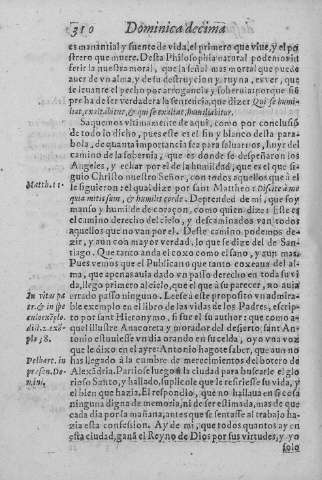 310 Dominica decima
es manantial y fuente de vida, el primero que viue, y el po
strero que muere. Desta Philosophia natural podemos in
ferir la nuestra moral, que la señal mas mortal que puede
auer de vn alma, y de su destruycion y ruyna, es ver, que
se leuante el pecho por arrogancia y soberuia: porque siē
pre ha de ser verdadera la sentencia, que dize: Qui se humi
liat, exaltabitur, & qui se exaltat, humiliabitur.
Saquemos vltimamente de aqui, como por conclusiō
de todo lo dicho, pues este es el fin y blanco desta para
bola, de quanta importancia sea para saluarnos, huyr del
camino de la soberuia, que es donde se despeñaron los
Angeles, y echar por el de la humildad, que es el que si-
guio Christo nuestro Señor, con todos aquellos que â el
le siguieron: el qual dize por sant Mattheo: Discite à me
quia mitis sum, & humilis corde. Deprended de mi, que soy
manso y humilde de coraçon, como quien dize: Este es
el camino derecho del cielo, y descaminados van todos
aquellos que no van por el. Deste camino podemos de-
zir, y aun con mayor verdad, lo que se dize del de San-
tiago. Que tanto anda el coxo como el sano, y aun mas.
Pues vemos que el Publicano que tanto coxeaua del al
ma, que apenas auia dado vn passo derecho en toda su vi
da, llego primero al cielo, que el que â su parecer, no auia
errado passo ninguno. Leese â este proposito vn admira-
ble exemplo en el libro de las vidas de los Padres, escrip
to por sant Hieronymo, si fue el su author: que como a-
quel illustre Anacoreta y morador del desierto sant An-
tonio estuuiesse vn dia orando en su celda, oyo vna voz
que le dixo en el ayre: Antonio hagote saber, que aun no
has llegado â la cumbre de merecimientos del botero de
Alexādria. Partiose luego â la ciudad para buscarle el glo
rioso Santo, y hallado, suplicole que le refiriesse su vida, y
el bien que hazia. El respondio, que no hallaua en si cosa
ninguna digna de memoria, ni de ser estimada, mas de que
cada dia por la mañana, antes que se sentasse al trabajo ha-
zia esta confession. Ay de mi, que todos quantos ay en
esta ciudad, ganā el Reyno de Dios por sus virtudes, y yo
solo
Matth. 11.
In vitis pa
plo 58.